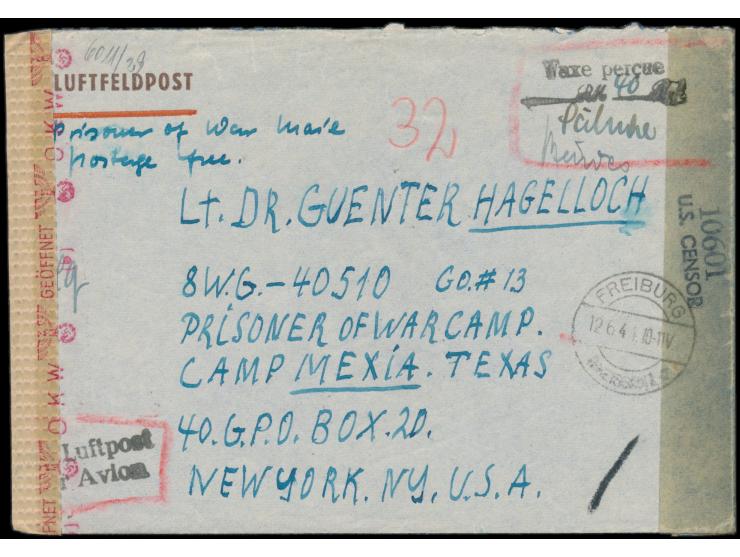 6011/39
LUFTFELDPOST
Taxe perçue
RM 40
Prisoner of War Mail
postage free.
32
LT. DR. GUENTER HAGELLOCH
8W.G.-40510 GO.#13
PRISONER OF WAR CAMP.
CAMP MEXIA. TEXAS
40.G.P.O. BOX.20.
NEWYORK. NY. U.S.A.
10601
U.S. CENSOR
FREIBURG
12.6.4 .10-11V
GEÖFFNET
OKW
OKW
Luftpost
r Avion
FNET